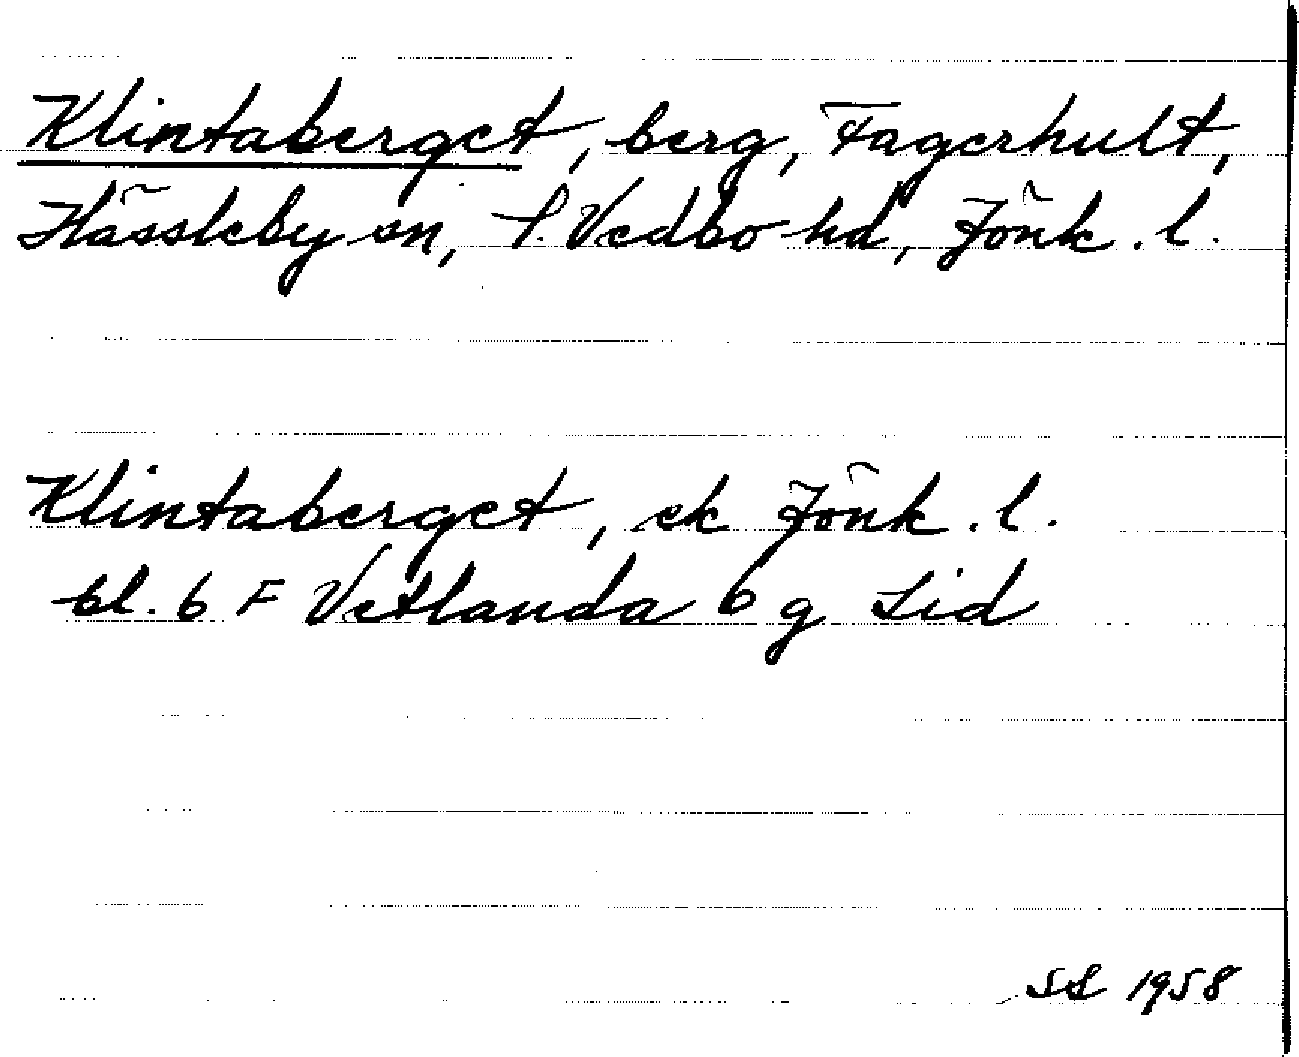 Klintaberget, berg, Fagerhult,
Hässleby sn, S. Vedbo hd, Jönk. l.
Klintaberget, ek Jönk. l.
bl. 6 F Vetlanda 6 g Lid
SL 1958